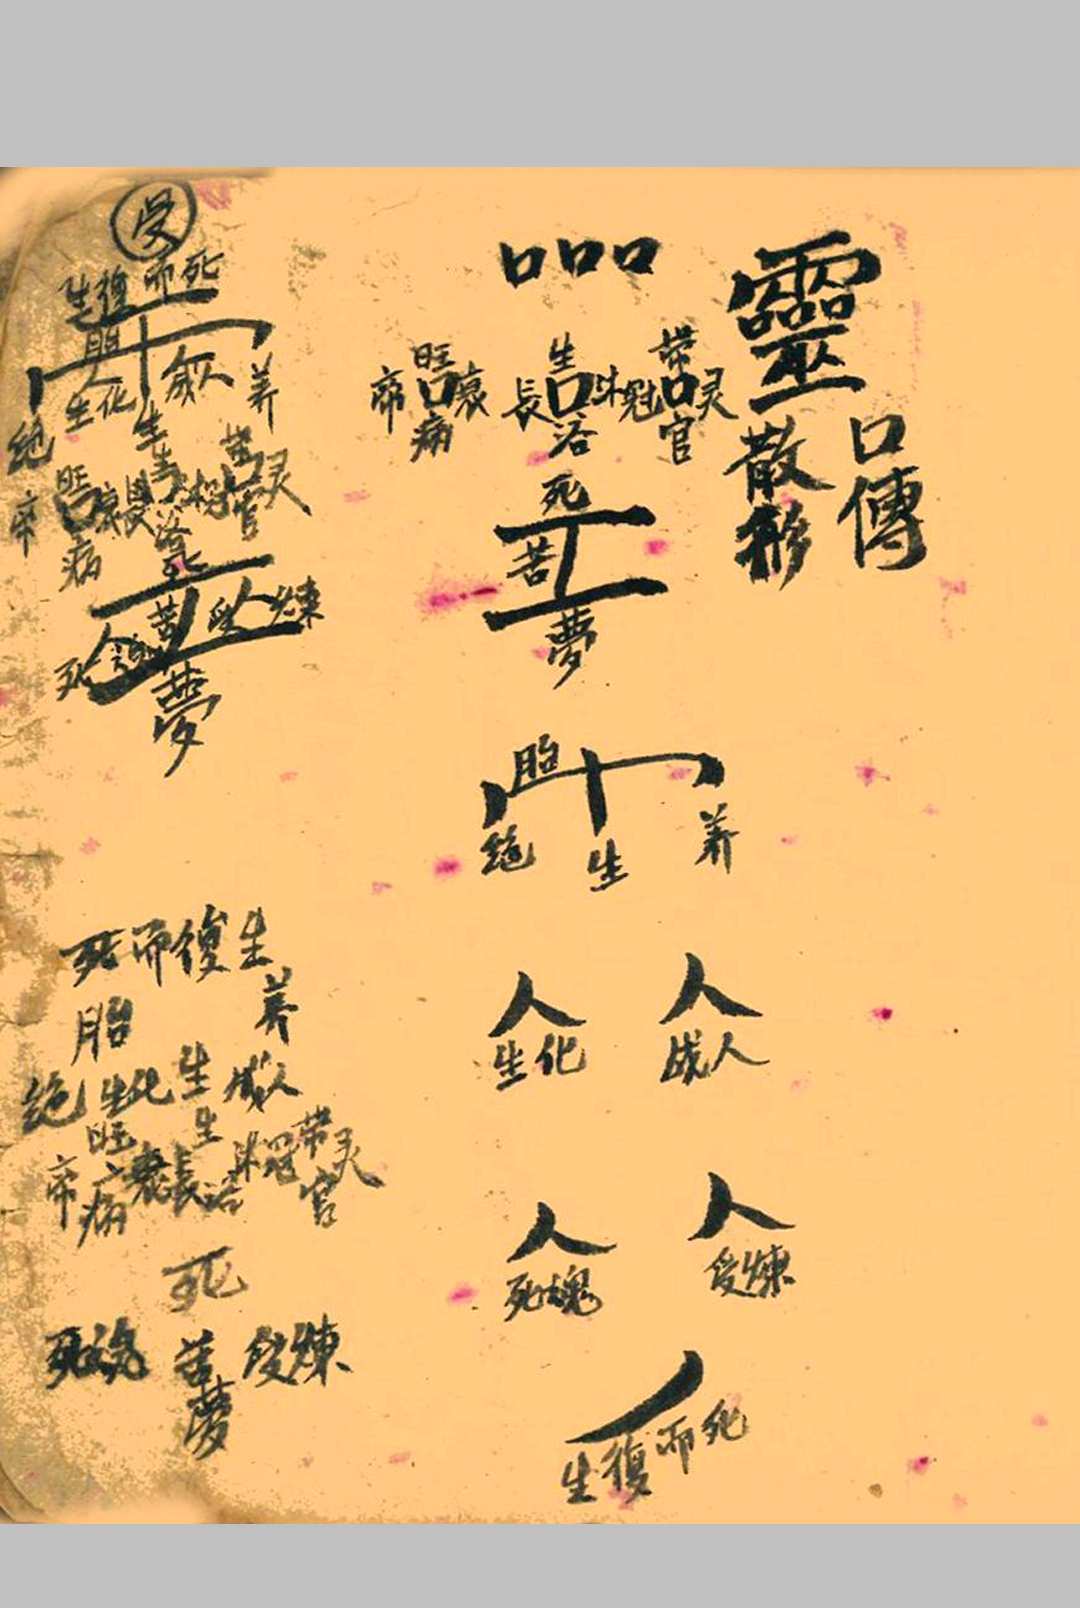 靈
散形
口傳
口口口
帶
冠口灵
官
生
長口沐
浴
旺
帝口衰
病
死
苦
夢
胎
絕 生 养
人 人
生化 成人
人 人
死魂 受煉
生復而死
受
生復而死
胎
人 人
生化
绝 生 养
旺 生 帶
帝 長 灵
病 浴 官
死
苦 受人煉
死人
夢
死而復生
胎 养
绝 生化 生 成人
旺 生 帶
帝 衰 長 沐 冠 灵
病 浴 官
死
死魂 苦 受煉
夢